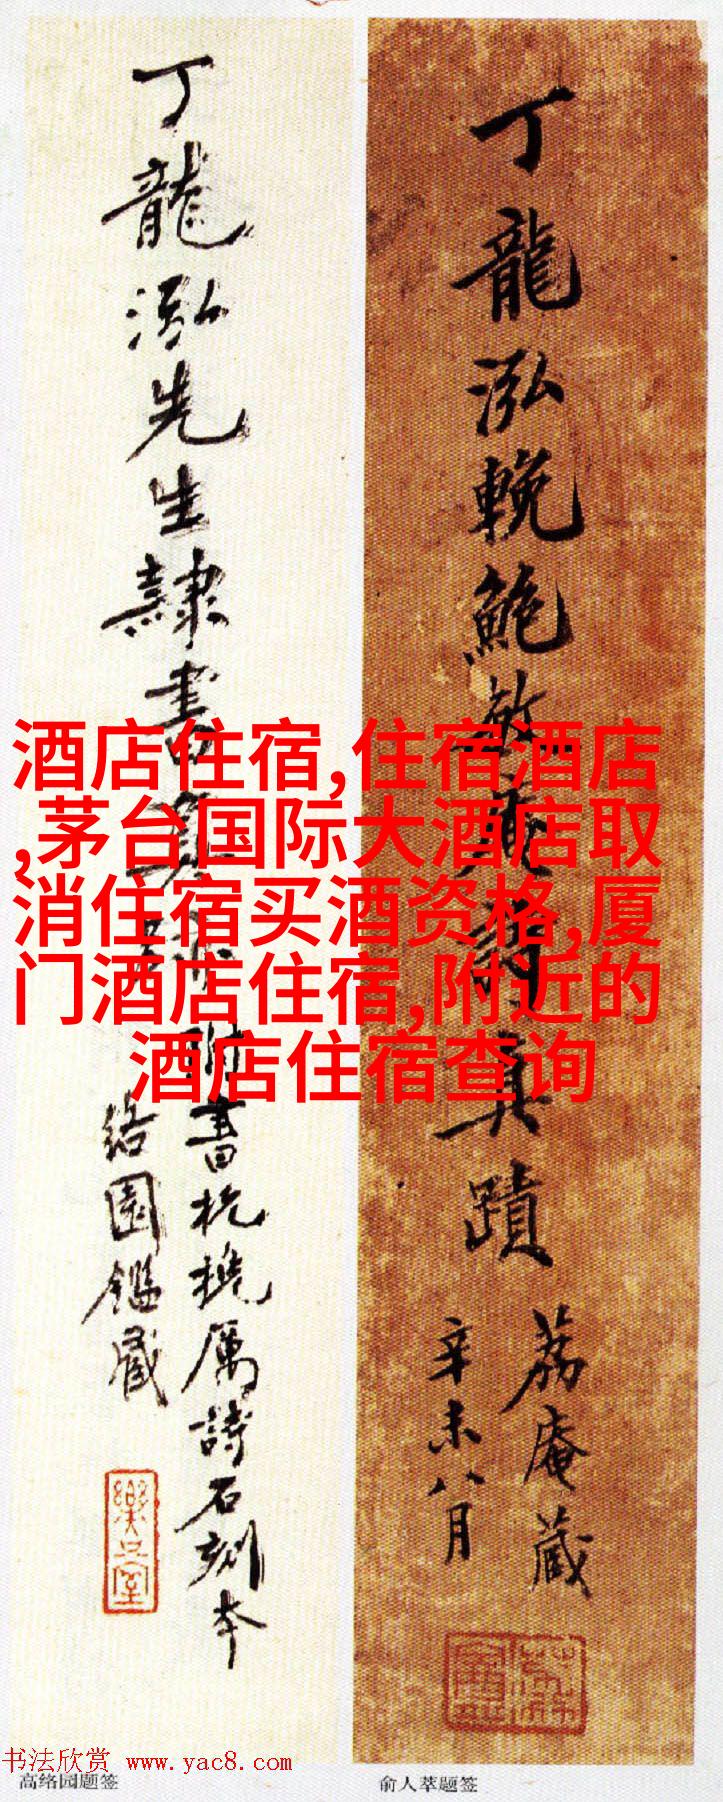 丁龍泓先生隸書真跡附書杭挽厲詩石刻本
絡園鑑藏
丁龍泓輓鮑敬齋詩真蹟
荔庵藏
辛未八月
酒店住宿,住宿酒店
,茅台国际大酒店取
消住宿买酒资格,厦
门酒店住宿,附近的
酒店住宿查询
书法欣赏 www.yac8.com
高络园题签
俞人萃题签